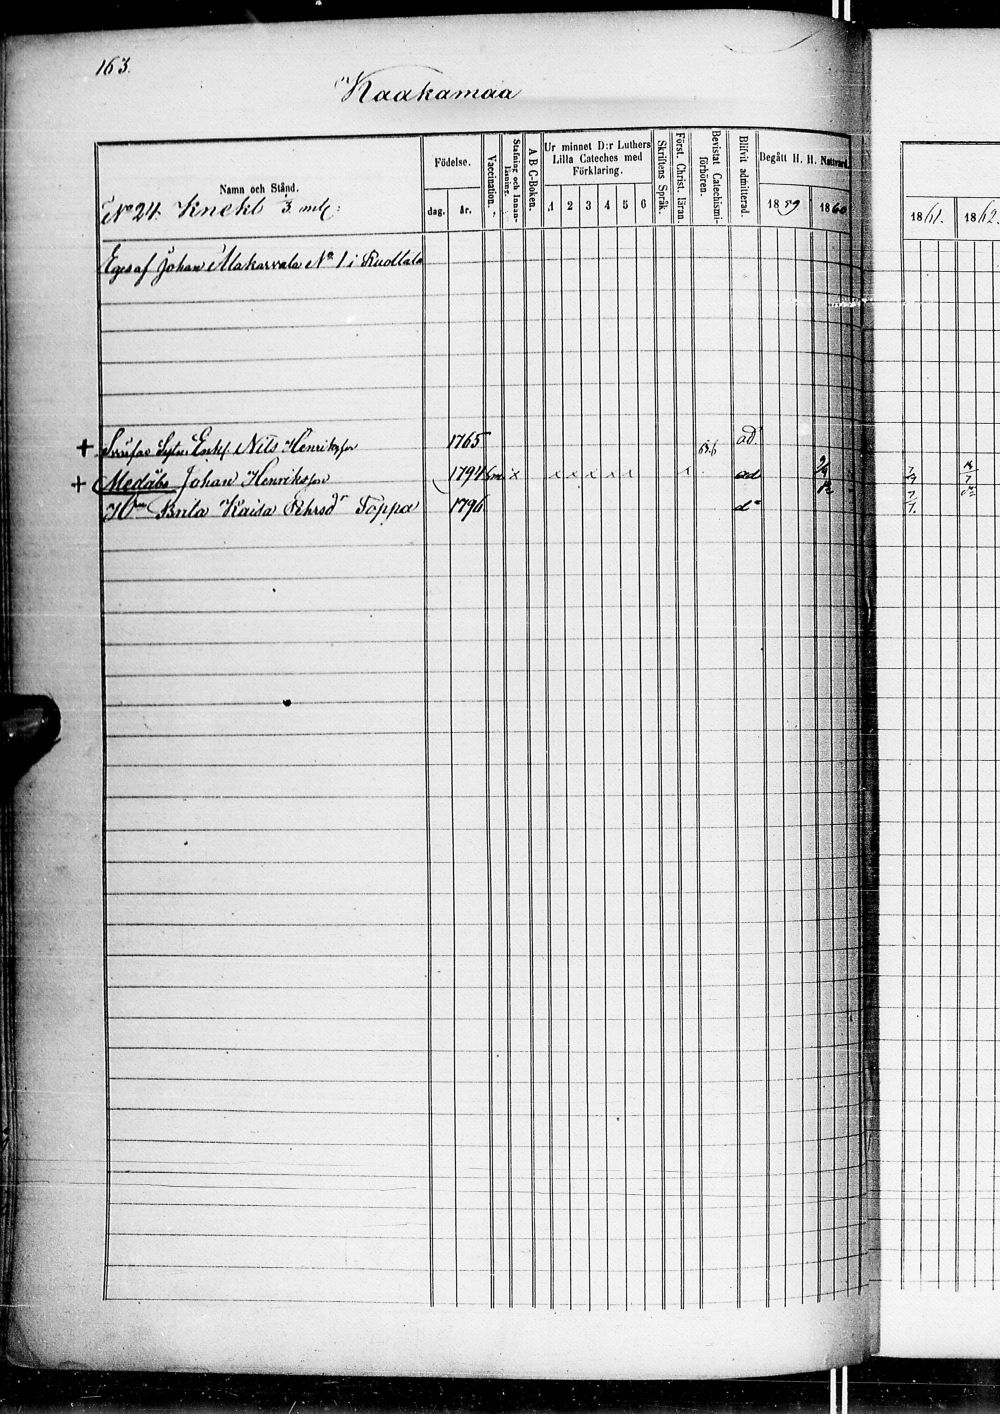 163.
Kaakamaa
Namn och Stånd.
Födelse.
dag.
år.
Vaccination.
Stafning och Innanläsning.
A B C-Boken.
Ur minnet D:r Luthers
Lilla Cateches med
Förklaring.
1 2 3 4 5 6
Skriftens Språk.
Först. Christ. läran.
Bevistat Catechismi-
förhören.
Blifvit admitterad.
Begått H. H. Nattvard.
1859
1860
1861.
1862.
No 24. Knekt
Eges af Johan Makarvala No 1 i
Enkl. Nils Henriksson 1765 ad
Johan Henriksson 1794 x x x x x x ad
Kaisa Toppa 1796 do